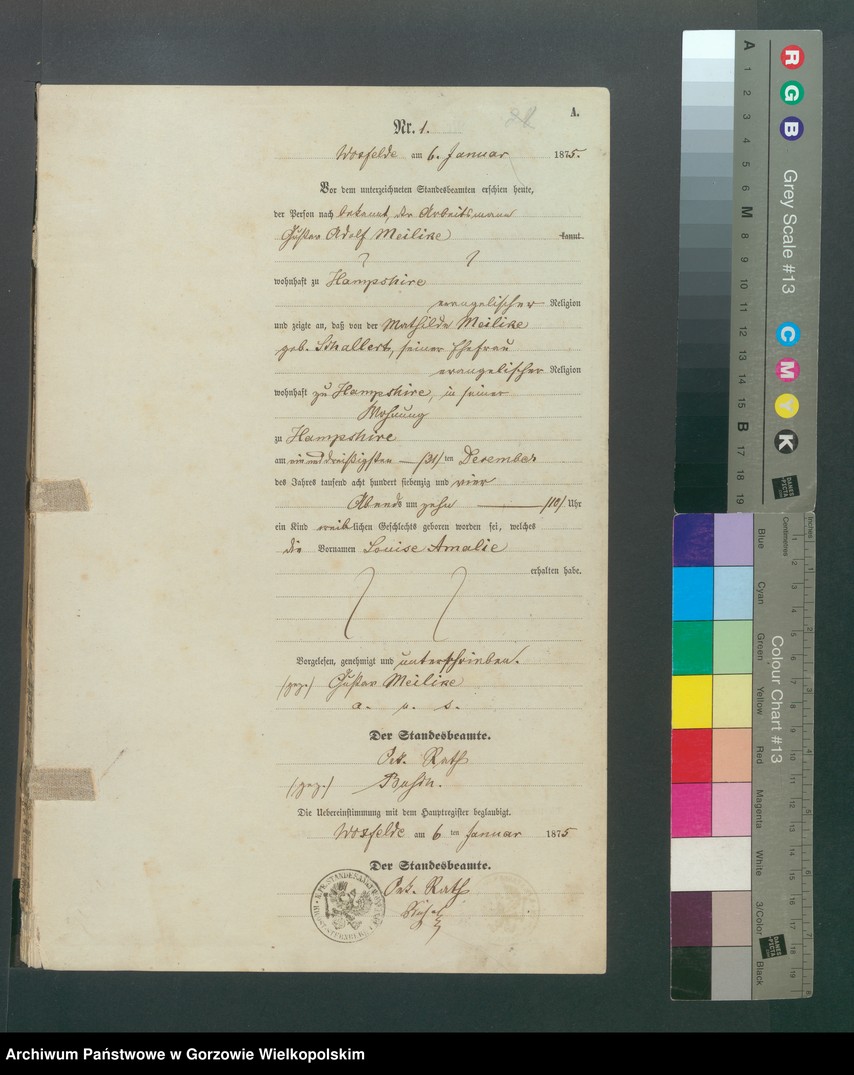 A.
Nr. 1.
Woxfelde am 6. Januar 1875.
Vor dem unterzeichneten Standesbeamten erschien heute,
der Person nach bekannt, der Arbeitsmann
Gustav Adolf Meilike kannt
wohnhaft zu Hampshire
evangelischer Religion
und zeigte an, daß von der Mathilde Meilike
geb. Schallert, seiner Ehefrau
evangelischer Religion
wohnhaft zu Hampshire, in seiner
Wohnung
zu Hampshire
am ein und dreißigsten /31/ ten Dezember
des Jahres tausend acht hundert siebenzig und vier
Abends um zehn /10/ Uhr
ein Kind weiblichen Geschlechts geboren worden sei, welches
die Vornamen Louise Amalie
erhalten habe.
Vorgelesen, genehmigt und unterschrieben.
(gez.) Gustav Meilike
a. u. s.
Der Standesbeamte.
Rath
(gez.)
Die Uebereinstimmung mit dem Hauptregister beglaubigt.
Woxfelde am 6 ten Januar 1875
Der Standesbeamte.
Rath
A 1 2 3 4 5 6 M 8 9 10 11 12 13 14 15 B 17 18 19
R G B
Grey Scale #13
C M Y K
DANES PICTA
Blue Cyan Green Yellow Red Magenta White 3/Color Black
Colour Chart #13
Centimetres Inches
DANES PICTA
Archiwum Państwowe w Gorzowie Wielkopolskim